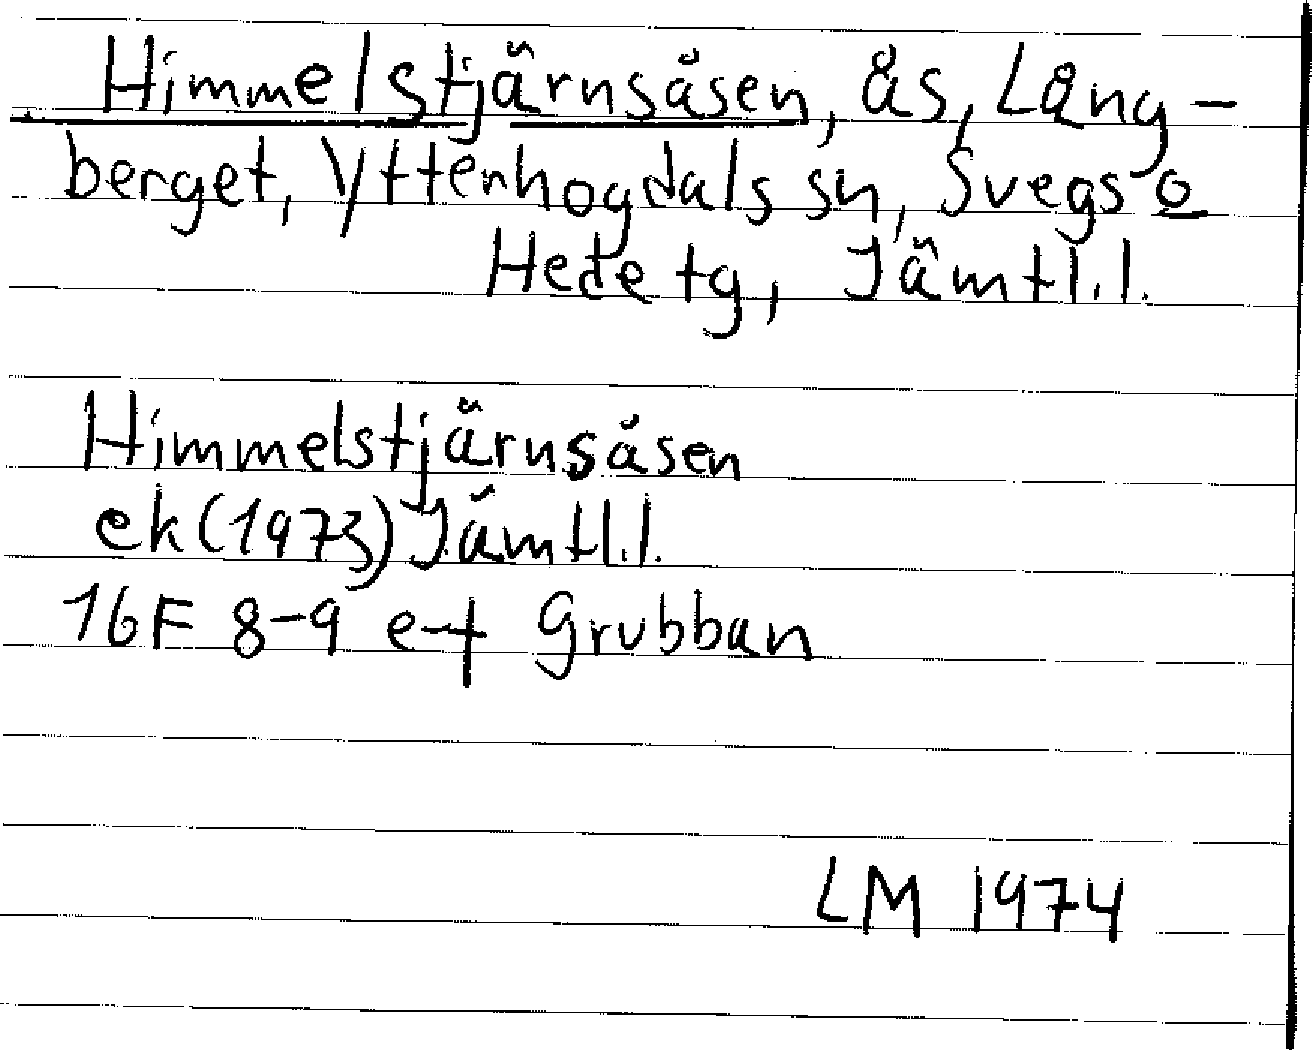 Himmelstjärnsåsen, ås, Lång-
berget, Ytterhogdals sn, Svegs o
Hede tg, Jämtl.l.
Himmelstjärnsåsen
ek (1973) Jämtl.l.
16F 8-9 e-f Grubban
LM 1974